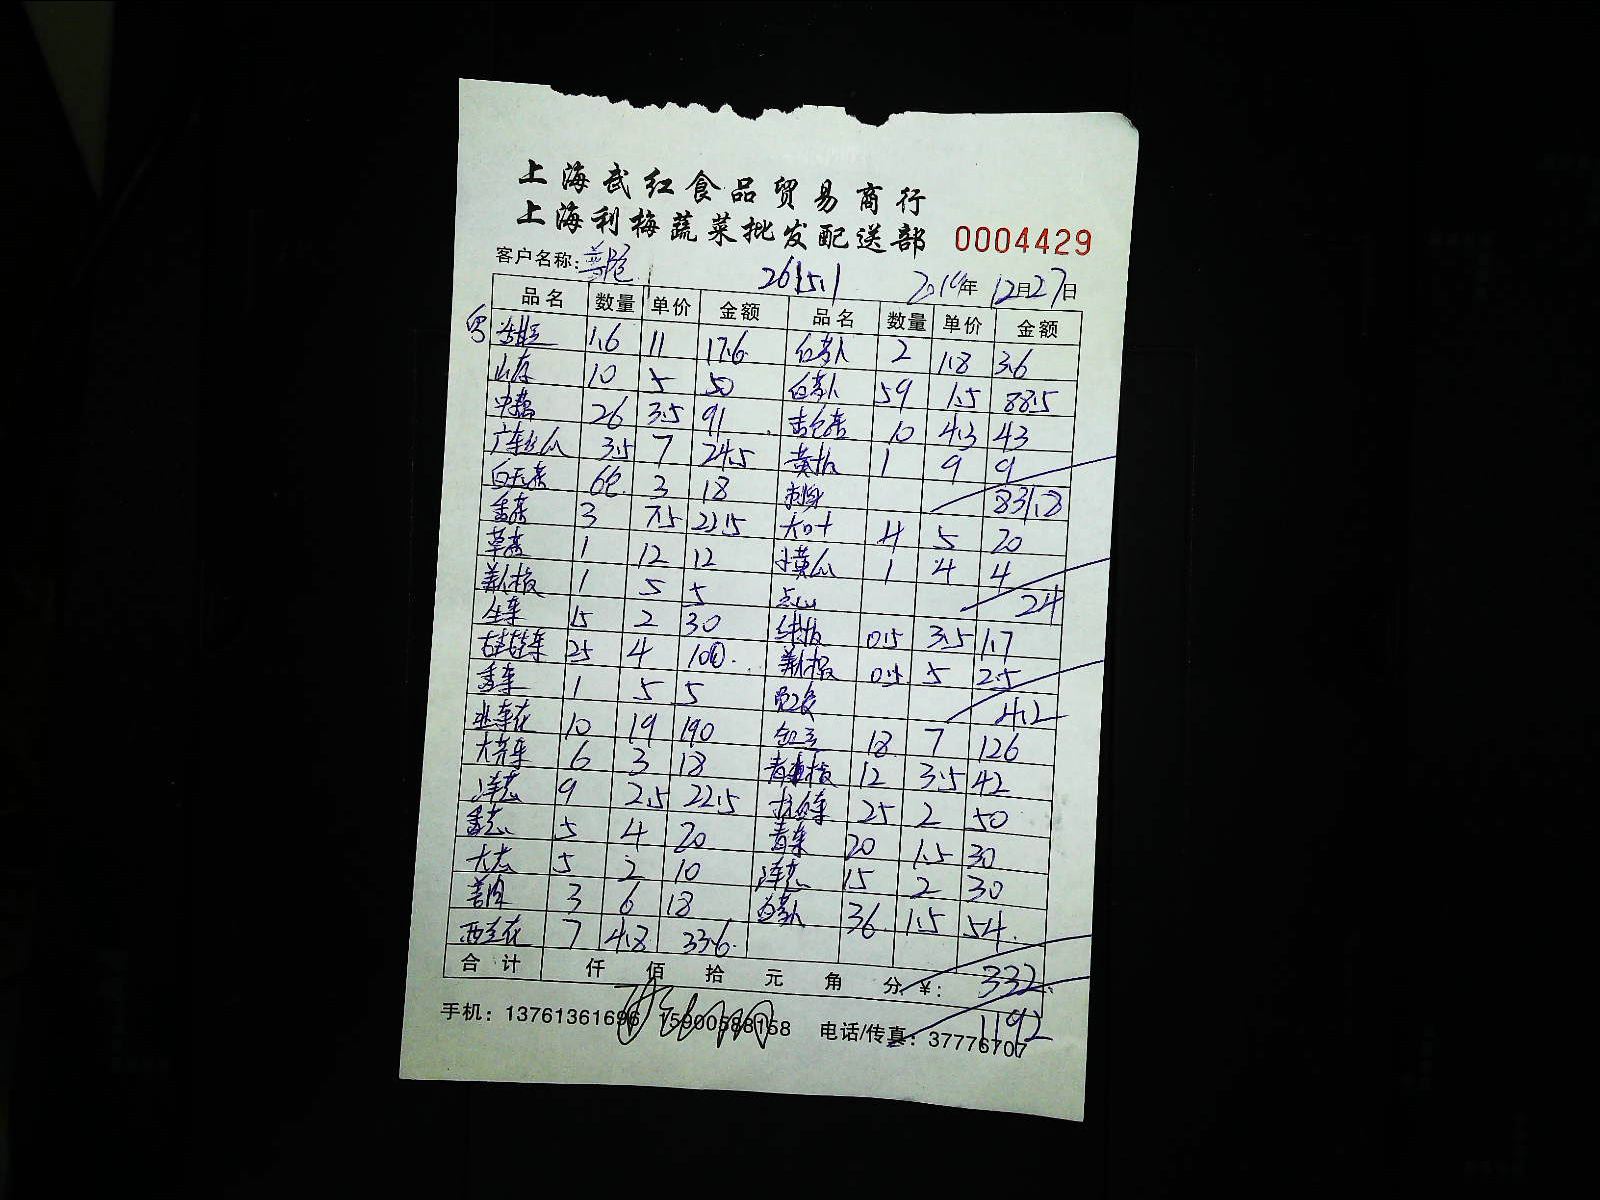 上海武红食品贸易商行
上海利梅蔬菜批发配送部 0004429
客户名称: 2615.1 年 12月27日
品名 数量 单价 金额 品名 数量 单价 金额
1.6 11 17.6 红萝卜 2 1.8 3.6
山药 10 5 50 白萝卜 59 1.5 88.5
中藕 26 3.5 91 10 4.3 43
3.5 7 24.5 黄椒 1 9 9
3 18 刺身 831.8
香菜 3 7.5 22.5 大叶 4 5 20
草菇 1 12 12 小黄瓜 1 4 4
美人椒 1 5 5 点心 24
生菜 15 2 30 0.5 3.5 1.7
25 4 100 美人椒 0.5 5 2.5
1 5 5 4.2
韭菜花 10 19 190 18 7 126
6 3 18 12 3.5 42
洋葱 9 2.5 22.5 25 2 50
香葱 5 4 20 青菜 20 1.5 30
大葱 5 2 10 洋葱 15 2 30
3 6 18 白萝卜 36 1.5 54
西兰花 7 4.8 33.6
合计 仟 佰 拾 元 角 分 ¥: 332
1192
手机：13761361696 15900588158 电话/传真：37776707